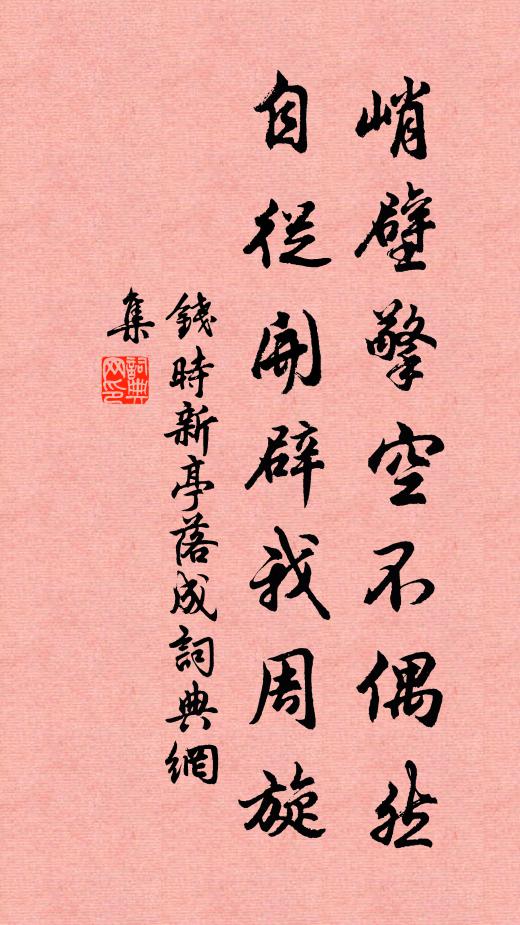 峭壁擎空不偶然
自從開辟我周旋
錢時新亭落成詞典網
集
詞典网印